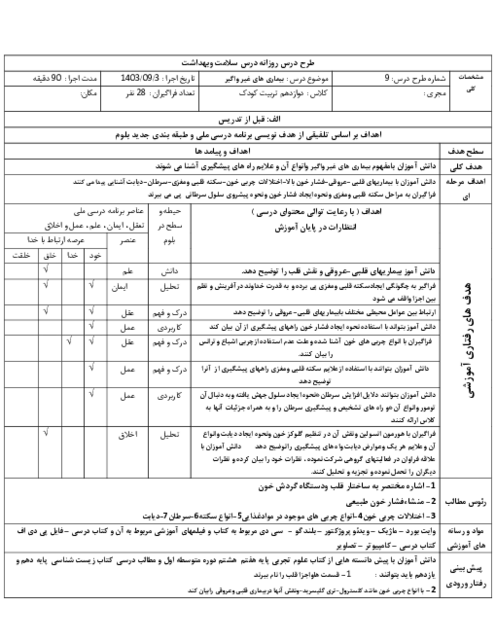 طرح درس روزانه درس سلامت وبهداشت
مشخصات کلی
شماره طرح درس: 9
موضوع درس: بیماری های غیر واگیر
تاریخ اجرا: 1403/09/3
مدت اجرا: 90 دقیقه
مجری:
کلاس: دوازدهم تربیت کودک
تعداد فراگیران: 28 نفر
مکان:
الف: قبل از تدریس
اهداف بر اساس تلفیقی از هدف نویسی برنامه درسی ملی و طبقه بندی جدید بلوم
سطح هدف
اهداف و پیامد ها
هدف کلی
دانش آموزان بامفهوم بیماری های غیر واگیر وانواع آن و علایم راه های پیشگیری آشنا می شوند.
اهداف مرحله ای
دانش آموزان با بیماریهای قلبی-عروقی-فشار خون بالا-اختلالات چربی خون-سکته قلبی ومغزی-سرطان-دیابت آشنایی پیدا می کنند
فراگیران به مراحل سکته قلبی ومغزی ونحوه ایجاد فشار خون ونحوه پیشروی سلول سرطانی پی می برند
هدف های رفتاری آموزشی
اهداف ( با رعایت توالی محتوای درسی )
انتظارات در پایان آموزش
حیطه و سطح در بلوم
عناصر برنامه درسی ملی
تعقل، ایمان ، علم، عمل و اخلاق
عنصر
عرصه ارتباط با خدا
خود
خدا
خلق
خلقت
دانش آموز بیماریهای قلبی-عروقی و نقش قلب را توضیح دهد.
دانش
علم
√
فراگیر به چگونگی ایجادسکته قلبی ومغزی پی برده و به قدرت خداوند در آفرینش و نظم بین اجزا واقف می شود
تحلیل
ایمان
√
√
ارتباط بین عوامل محیطی مختلف بابیماریهای قلبی-عروقی را توضیح دهد
درک و فهم
عقل
√
√
دانش آموز بتواند با استفاده نحوه ایجاد فشار خون راههای پیشگیری از آن بیان کند
کاربردی
عمل
√
فراگیران با انواع چربی های خون آشنا شده و علت عدم استفاده از چربی اشباع و ترانس را بیان کنند.
درک و فهم
عقل
√
√
دانش آموزان بتوانند با استفاده از علایم سکته قلبی ومغزی راههای پیشگیری از آنرا توضیح دهد
درک و فهم
عمل
√
دانش آموزان بتوانند دلایل افزایش سرطان،نحوه ایجاد سلول جهش یافته وبه دنبال آن تومور وانواع آن و راه های تشخیص و پیشگیری سرطان را و به همراه جزئیات آنها به کلاس ارائه کنند.
کاربردی
عمل
√
فراگیران با هورمون انسولین ونقش آن در تنظیم گلوکز خون ونحوه ایجاد دیابت وانواع آن و علایم هر یک وعوارض دیابت وراه های پیشگیری راتوضیح دهد دانش آموزان با علاقه فراوان در فعالیتهای گروهی شرکت نموده ، نظرات خود را بیان کرده و نظرات دیگران را تحمل نموده و تجزیه و تحلیل کنند.
تحلیل
اخلاق
√
رئوس مطالب
1- اشاره مختصر به ساختار قلب ودستگاه گردش خون
2- منشاءفشار خون طبیعی
3- اختلالات چربی خون 4-انواع چربی های موجود در موادغذایی5-انواع سکته6-سرطان7-دیابت
مواد و رسانه های آموزشی
وایت بورد – ماژیک – ویدئو پروژکتور – بلندگو - سی دی مربوط به کتاب و فیلمهای آموزشی مربوط به آن و کتاب درسی –فایل پی دی اف کتاب درسی – کامپیوتر – تصاویر
پیش بینی رفتار ورودی
دانش آموزان با پیش دانسته هایی از کتاب علوم تجربی پایه هفتم هشتم دوره متوسطه اول و مطالب درسی کتاب زیست شناسی پایه دهم و یازدهم باید بتوانند : 1- قسمت هاواجزا قلب را نام ببرند.
2- با انواع چربی خون مانند کلسترول-تری گلیسرید-ونقش آنها دربیماری قلبی وعروقی رابیان کند.